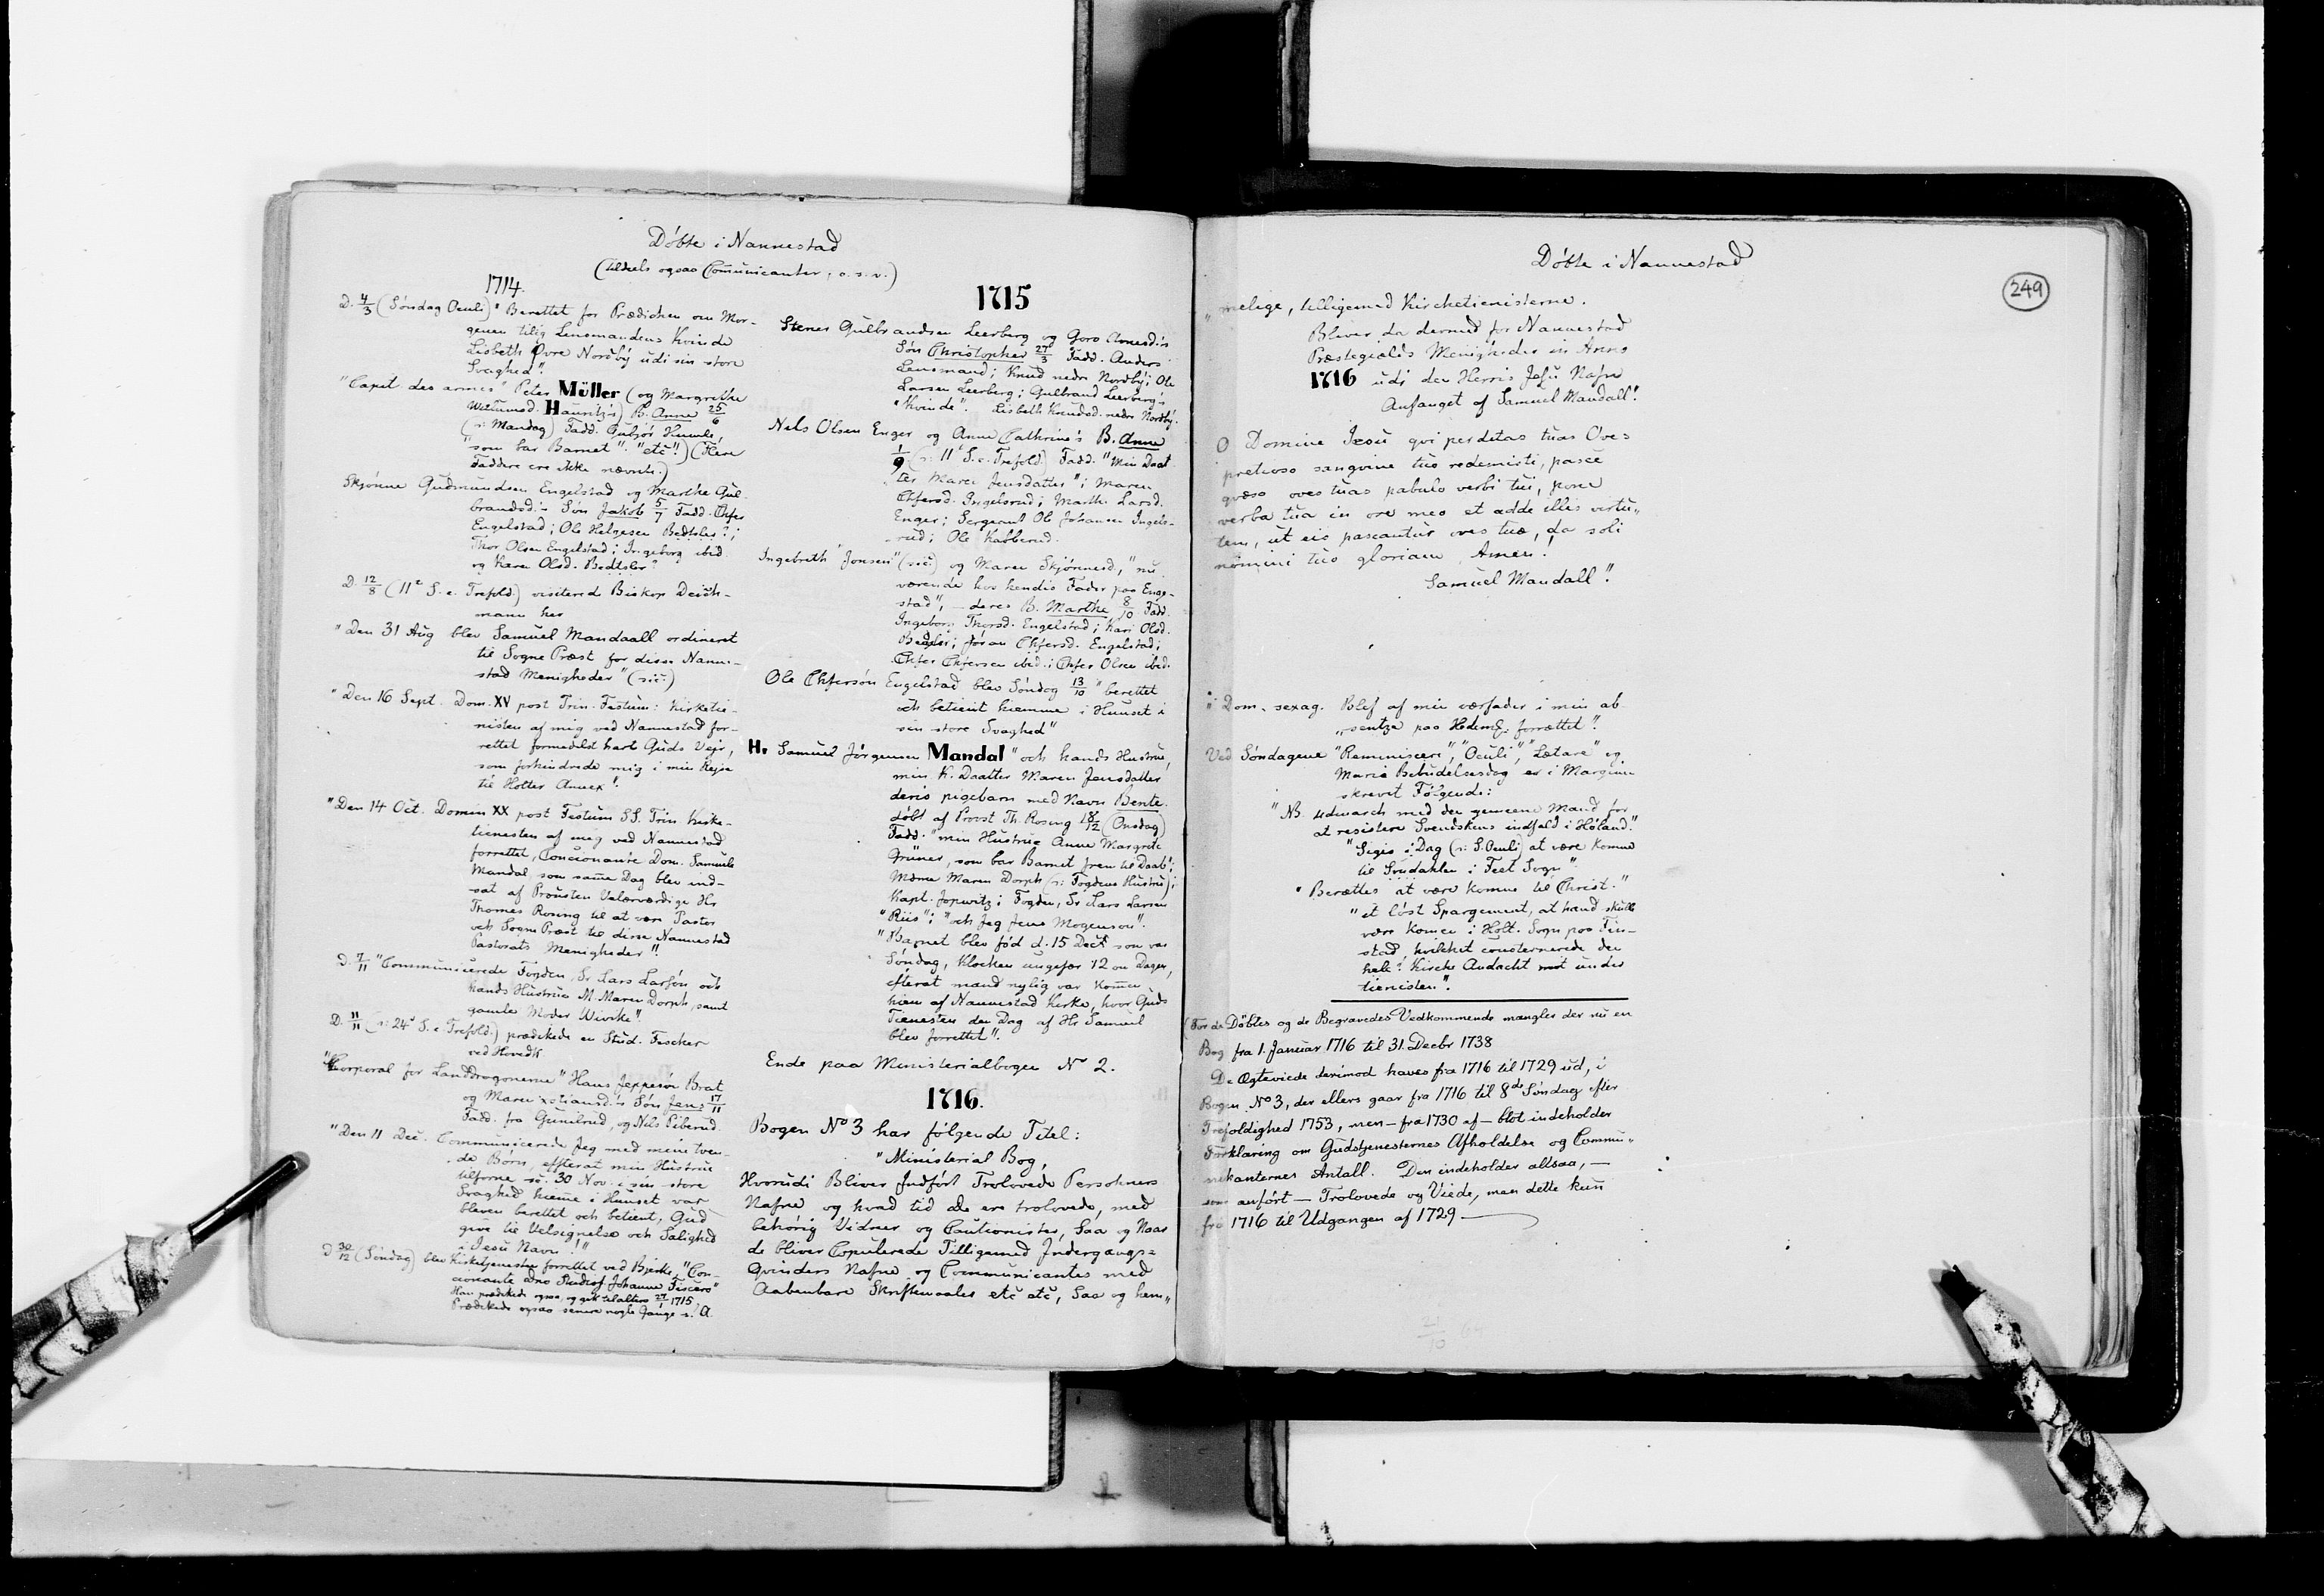 Döbte i Nannestad
(tildels ogsaa Com̃unicanter, o.s.v.)
1714.
D. 4/3 (Söndag Oculi) "Berettet for Prædichen om Mor-
genen tilig Lensmandens Kvinde
Lisbeth Øvre Nordbÿ udi sin store
Svaghed".
"Capit. des armes" Peter Müller (og Margrethe
Hauritz's) B. Anne 25/6
(ɔ: Mandag) Fadd. Gubjör Humle,
"som bar Barnet". "etc"!) (Flere
Faddere ere ikke nævnte.)
Skjönne Gudmundsen Engelstad og Marthe Gul-
brandsd.s Sön Jakob 5/7 Fadd. Chfer
Engelstad; Ole Helgesen Bedtsler?;
Thor Olsen Engelstad; Ingeborg ibid.
og Karen Olsd. Bedtsler?
D. 12/8 (11e S. e. Trefold.) visitered Biskop Deich-
mann her
"Den 31 Aug blev Samuel Mandaall ordineret
til Sogne Præst for disse Nanne-
stad Menigheder" (sic.)
"Den 16 Sept. Dom. XV post Trin. Festum: Kirketie-
nisten af mig ved Nannestad for-
rettet formedelst hart Guds Vejr,
som forhindrede mig i min Rejse
til Holter Annex".
"Den 14 Oct. Domin XX post Festum SS. Trin Kirke-
tienesten af mig ved Nannestad
forrettet, Concionante Dom. Samuele
Mandal som sam̃e Dag blev ind-
sat af Prousten Velærværdige Hr
Thomes Rosing til at være Pastor
och Sogne Præst til disse Nannestad
Pastorats Menigheder".
D. 7/11 "Communicerede Fogden, Sr Lars Larsön och
hands Hustrue M. Maren Dorph, samt
gamle Moder Wivike".
D. 11/11 (ɔ: 24d S. e Trefold.) prædikede en Stud. Fischer
ved Hovedk.
"Corporal for Landdragonerne" Hans Jeppesön Brat
og Maren xstiansd.'s Sön Jens 17/11
Fadd. fra Gunilrud, og Nils Piberud.
"Den 11 Dec. Communicerede Jeg med mine tven-
de Börn, effterat min Hustrue
tilforne d. 30 Nov. i sin store
Svaghed hiem̃e i Huuset var
bleven berettet och betient, Gud
give til Velsignelse och Salighed
i Jesu Navn!"
D 30/12 (Söndag) blev Kirketjenesten forrettet ved Bjerke, "Con-
cionante Dno Studios. Johanne Fiscero"
Han prædikede ogsaa, og gik til alters 27/1 1715,
Prædikede ogsaa senere nogle Gange s. A.
1715
Stener Gulbrandsen Leerberg og Goro Arnesd.s
Sön Christopher 27/3 Fadd. Anders
Lensmand; Knud nedr Nordbÿ; Ole
Larsen Leerberg; Gulbrand Leerberg's
"Kvinde". Lisbeth Knudsd. nedr Nordbÿ.
Nels Olsen Enger og Anne Cathrine's B. Anne
1/9 (ɔ: 11te S. e. Trefold.) Fadd. "Min Daat
ter Maren Jensdatter"; Maren
Chfersd. Ingelsrud; Marthe Larsd.
Enger; Sergeant Ole Johansen Ingels-
rud; Ole Kabberud.
Ingebreth "Jonsen" (sic.) og Maren Skjönnesd, "nu
værende hos hendis Fader paa Enge-
stad", – deres B. Marthe 8/10 Fadd.
Ingeborg Thorsd. Engelstad; Kari Olsd.
Bedtsler; Jöran Chfersd. Engelstad;
Chfer Chfersen ibid.; Chfer Olsen ibid.
Ole Chfersön Engelstad blev Söndag 13/10 "berettet
och betient hiemme i Huuset i
sin store Svaghed"
Hr Samuel Jörgensen Mandal "och hands Hustrue,
min K. Daatter Maren Jensdatter
deris pigebarn med Navn Bente.
döbt af Provst Th. Rosing 18/12 (Onsdag)
Fadd. "min Hustrue Anne Margrete
Grüner, som bar Barnet frem til Daab";
Mdme Maren Dorph (ɔ: Fogdens Hustru);
Kapt. Jopwitz; Fogden, Sr Lars Larsen
"Riis"; "och Jeg Jens Mogensön".
"Barnet blev fød d. 15 Decb som var
Söndag, Klocken ungefær 12 om Dagen,
efterat mand nylig var Kom̃en
hiem af Nannestad Kirke, hvor Guds
Tienesten den Dag af Hr Samuel
blev forrettet".
Ende paa Ministerialbogen No 2.
1716.
Bogen No 3 har følgende Titel:
"Ministerial Bog,
Hvorudi Bliver Indfört Trolovede Persohners
Nafne og hvad tid de ere trolovede, med
behörig Vidner og Cautionister, Saa og Naar
de bliver Copulerede Tilligemed Indergangs=
Qvinders Nafne og Communicantes med
Aabenbare Skriftemaales etc etc, Saa og hem„
Döbte i Nannestad
249
„melige, tilligemed Kirchetienisterne.
Bliver da dermed for Nannestad
Præstegields Menigheder in Anno
1716 udi den Herris Jesu Nafn
Anfanget af Samuel Mandall".
O Domine Jesu qvi perditas tuas Oves
pretioso sangvine tuo redemisti, pasce
qvæso oves tuas pabulo verbi tui, pone
verba tua in ore meo et adde illis virtu„
tem, ut eis pascantur oves tuæ, da soli
nomini tuo gloriam Amen!
Samuel Mandall".
"Dom. sexag. Blef af min værfader i min ab
„sentze paa Hedem. forrættet".
Ved Söndagene "Reminiscere", "Oculi", "Lætare" og
Mariæ Bebudelsesdag er i Marginen
skrevet Følgende:
"NB. udmarch med den gemeene Mand for
at resistere Svenskens indfald i Höland."
"Sigis i Dag (ɔ: S. Oculi) at være komne
til Grudahlen i Feet Sogn".
"Berættes at være komne til Christ."
"et löst Spargement, at hand skulle
være komen i Holt. Sogn paa Fin-
stad hvilchet consternerede den
hele Kirche Andacht undr
tienisten".
(For de Döbtes og de Begravedes Vedkommende mangler der nu en
Bog fra 1. Januar 1716 til 31. Decbr 1738
De Ægteviede derimod haves fra 1716 til 1729 ud, i
Bogen No 3, der ellers gaar fra 1716 til 8de Söndag efter
Trefoldighed 1753, men – fra 1730 af – blot indeholder
Forklaring om Gudstjenesternes Afholdelse og Commu„
nikanternes Antall. Den indeholder altsaa, –
som anfört – Trolovede og Viede, men dette kun
fra 1716 til Udgangen af 1729 –
21/10 64